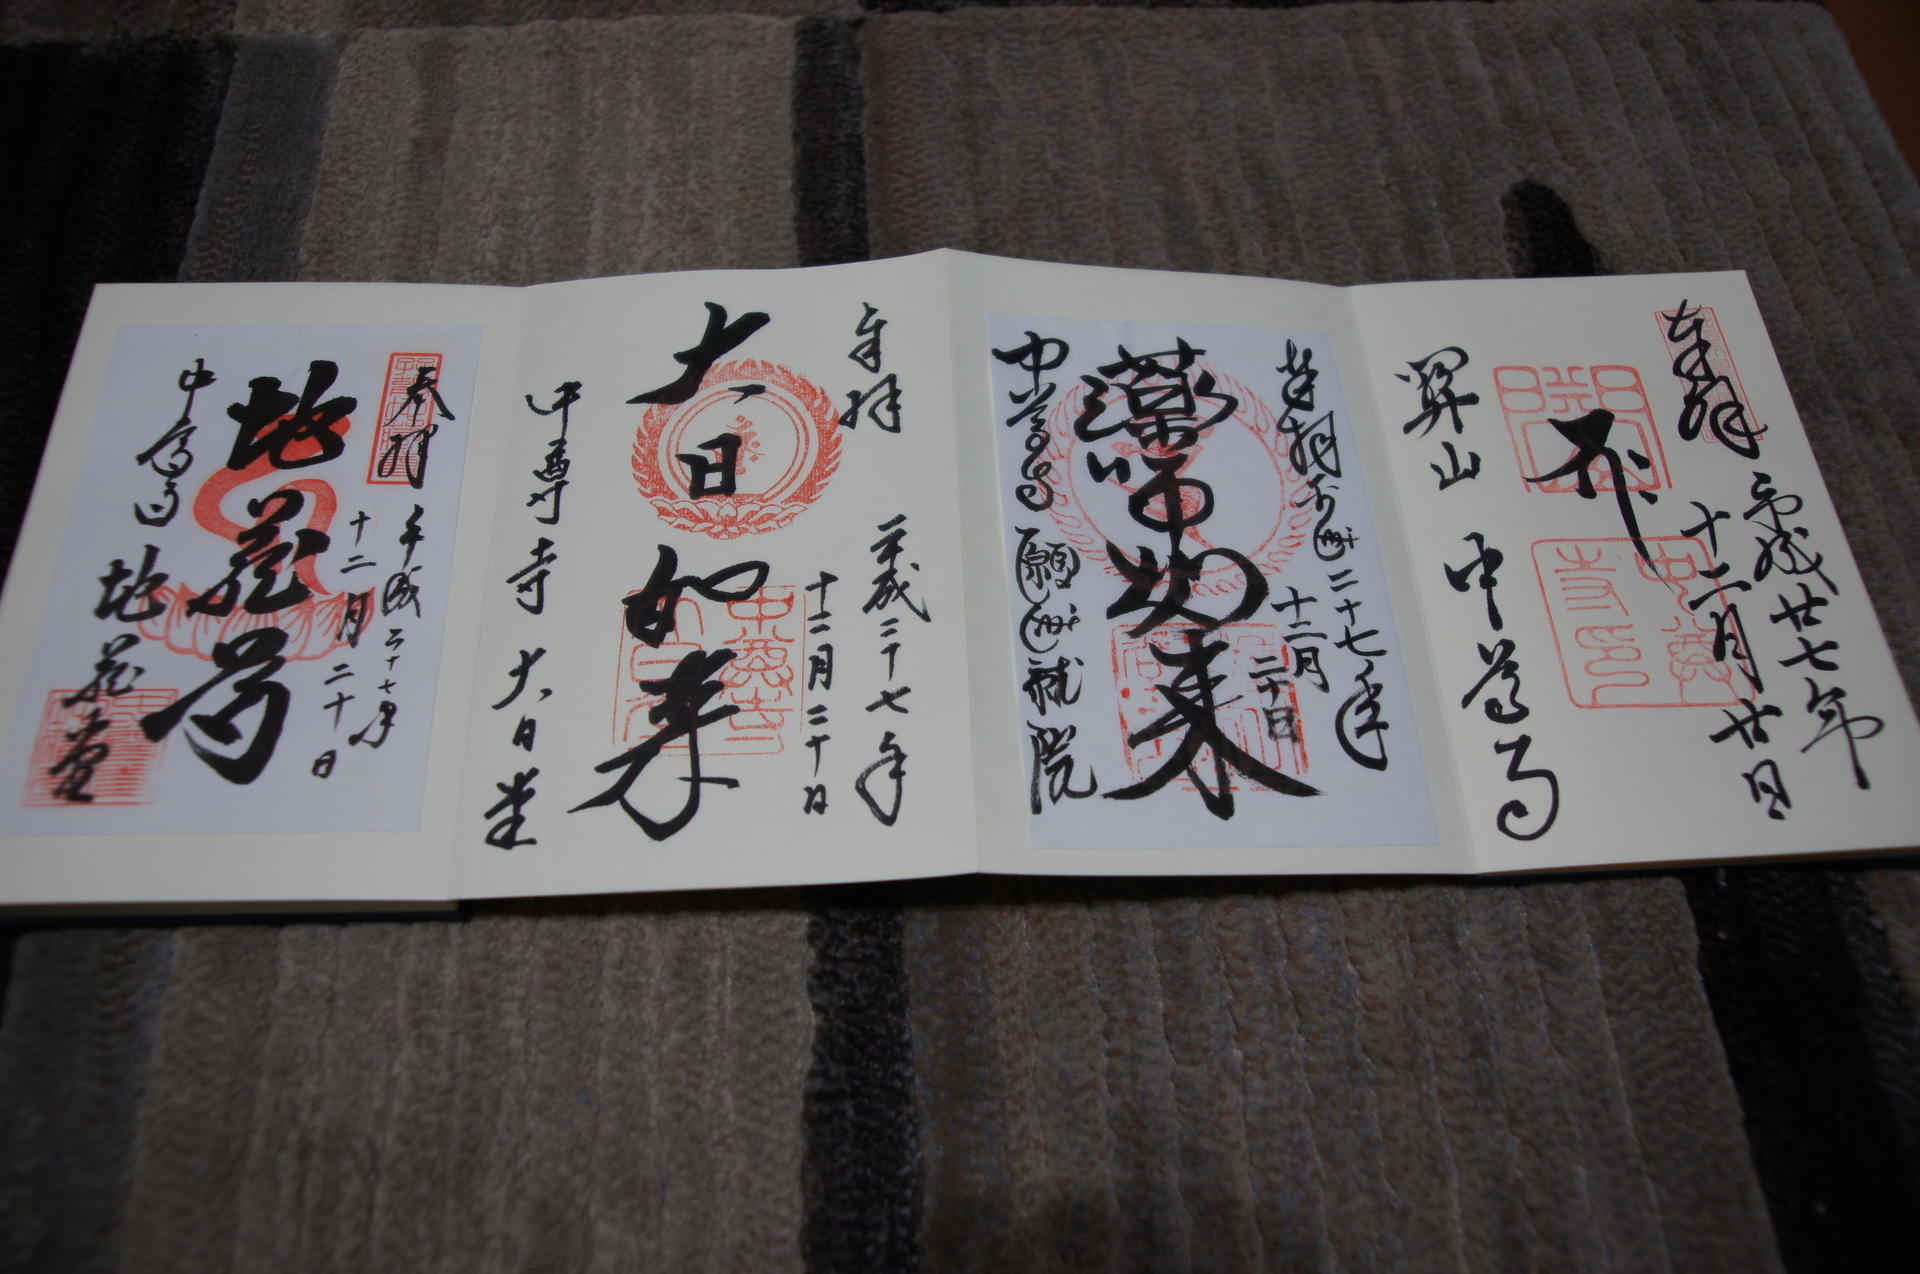 奉拝
平成廿七年
十二月廿日
関山 中尊寺
奉拝
平成二十七年
十二月二十日
薬師如来
中尊寺 願成就院
奉拝
平成二十七年
十二月二十日
大日如来
中尊寺 大日堂
奉拝
平成二十七年
十二月二十日
地蔵尊
中尊寺 地蔵堂